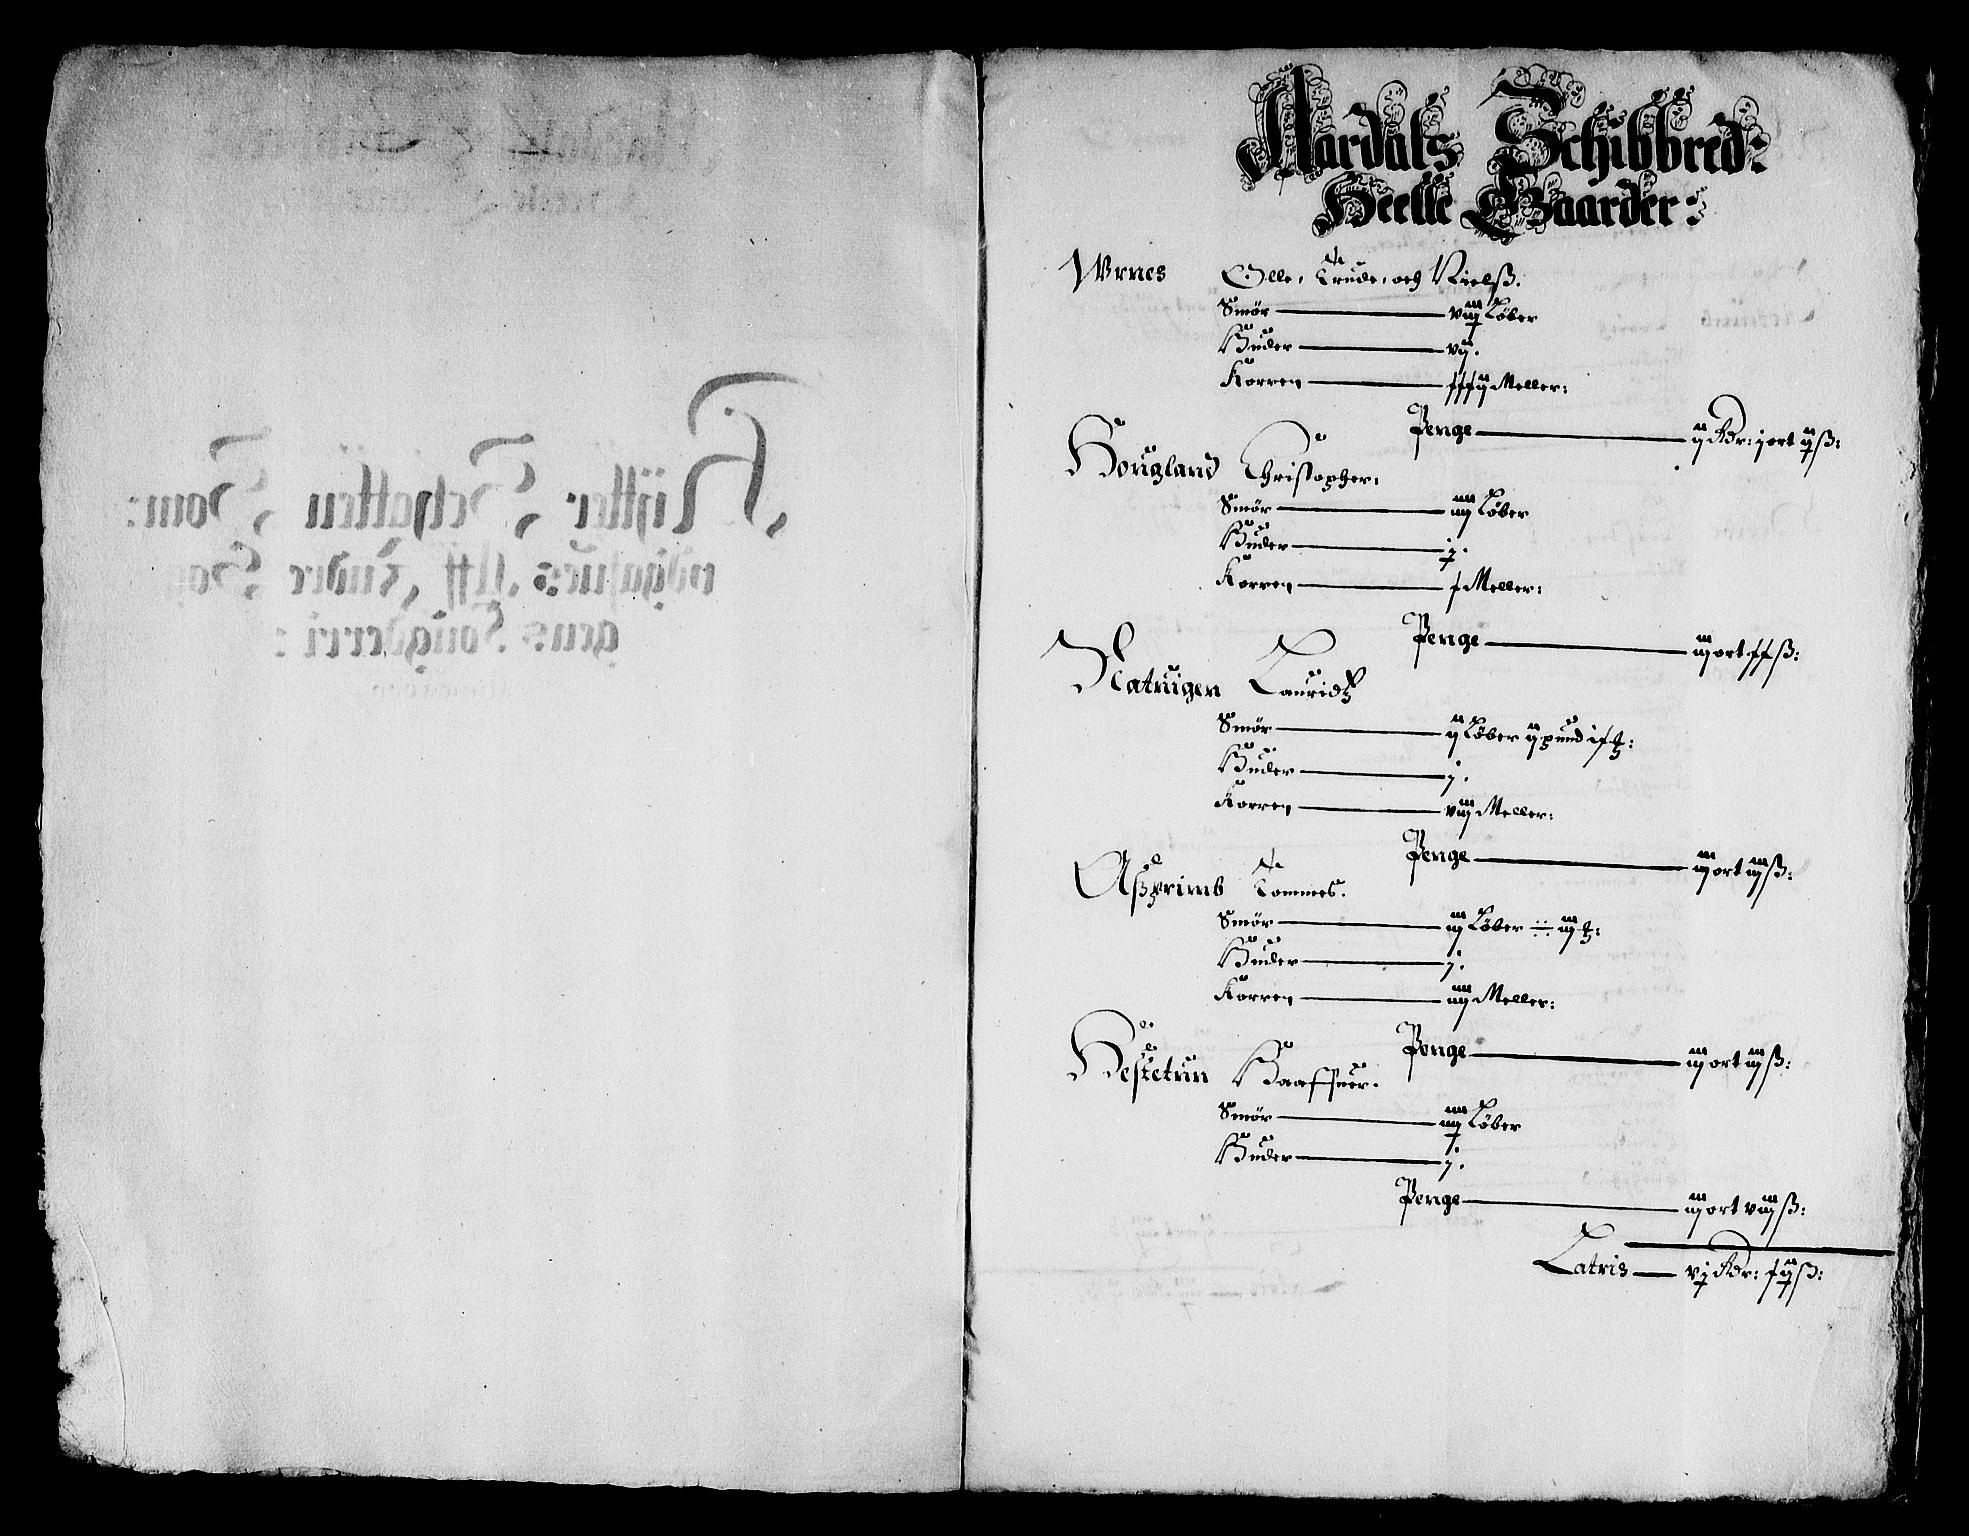 Aardals Schibbred:
Heelle Gaarder:
Wrnes Olle, Trude, och Nielß.
Smör — viij Løber
Huder — vij.
Korren — xxxij Meller:
Penge — ij Rdr: j ort iij ß:
Hougland Christopher:
Smör — iiij Løber
Huder — j.
Korren — x Meller:
Penge — iij ort xx ß:
Natuigen Lauridtz
Smör — ij Løber ij pund
Huder — j.
Korren — viij Meller:
Penge — iij ort iiij ß:
Aßprimb Tommes.
Smör — iij Løber ÷ iij
Huder — j.
Korren — iiij Meller:
Penge — iij ort iiij ß:
Hestetun Haaffuer.
Smör — iiij Løber
Huder — j.
Penge — iij ort viij ß:
Latris — vj Rdr: xij ß:
Rÿtter Schatten Som:
gens Fougderri: